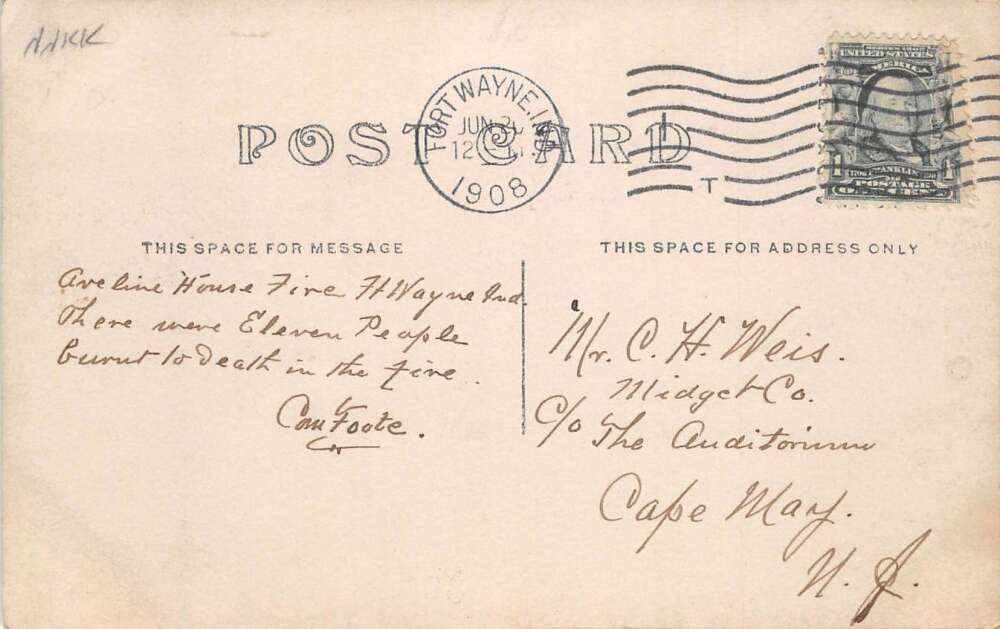 AAKK
FORT WAYNE, IND.
JUN
12
1908
T
SERIES 1902
UNITED STATES
AMERICA
1 FRANKLIN 1
POSTAGE
POST CARD
THIS SPACE FOR MESSAGE
Aveline House Fire Ft Wayne Ind.
There were Eleven People
burnt to Death in the fire.
Com Foote.
THIS SPACE FOR ADDRESS ONLY
Mr. C. H. Weis.
Midget Co.
C/o The Auditorium
Cape May.
N. J.